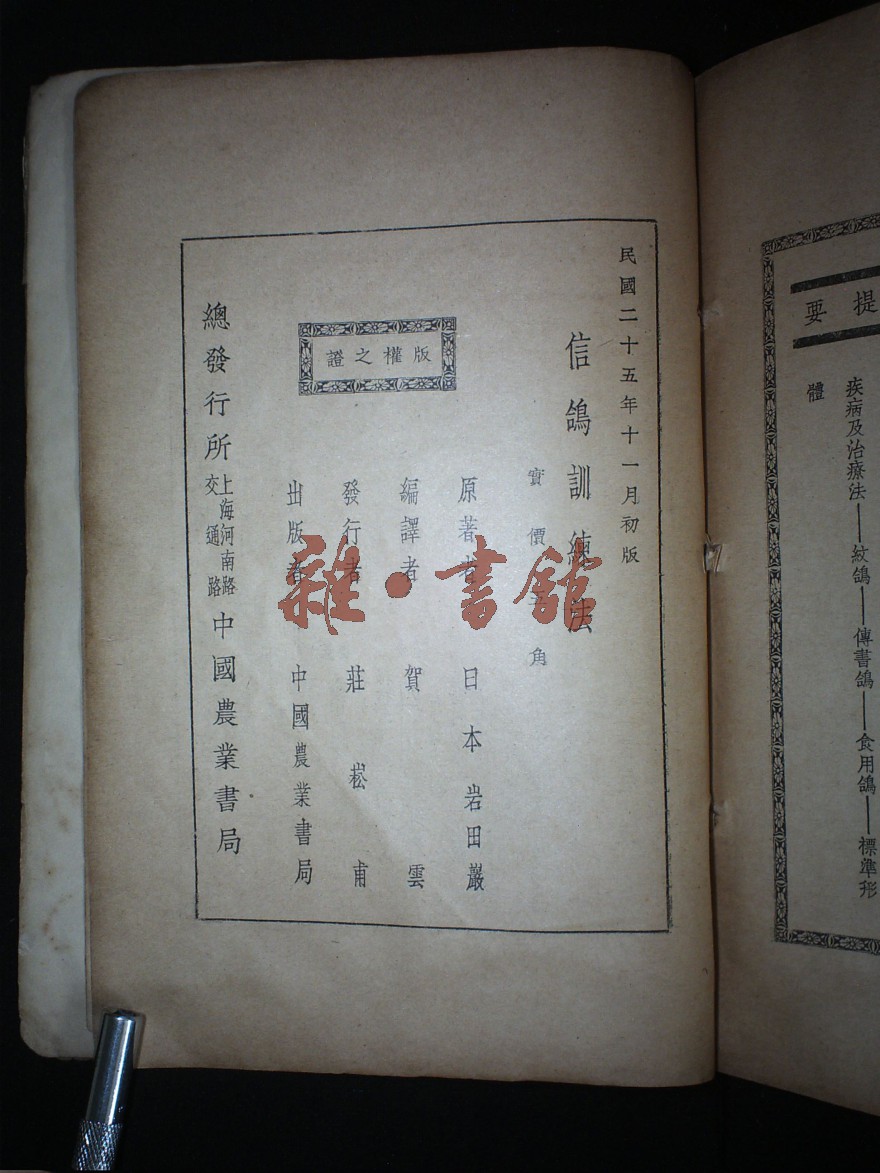 提要
疾病及治療法——紋鴿——傳書鴿——食用鴿——標準形
體
民國二十五年十一月初版
信鴿訓練法
實價
角
原著者 日本岩田巖
編譯者 賀雲
發行者 莊崧甫
出版者 中國農業書局
版權之證
總發行所 上海河南路交通路 中國農業書局
雜·書館